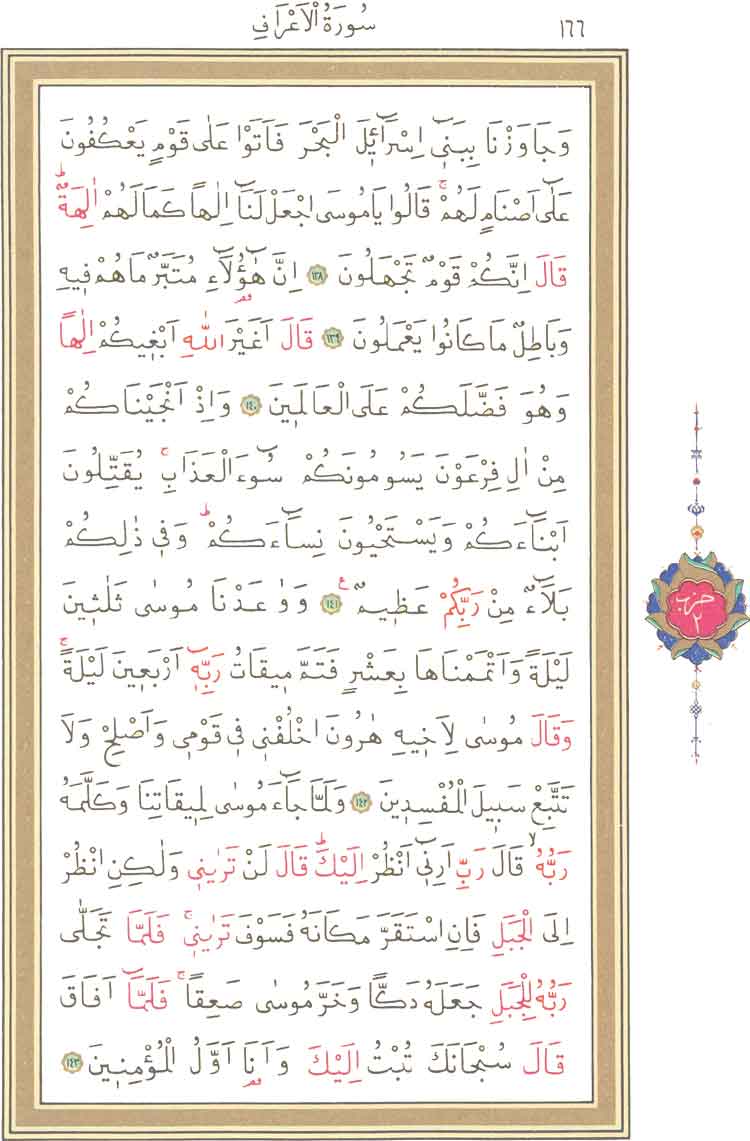 سُورَةُ الْاَعْرَافِ
١٦٦
وَجَاوَزْنَا بِبَنٖٓى اِسْرَٓائٖلَ الْبَحْرَ فَاَتَوْا عَلٰى قَوْمٍ يَعْكُفُونَ
عَلٰٓى اَصْنَامٍ لَهُمْۚ قَالُوا يَامُوسَى اجْعَلْ لَنَٓا اِلٰهًا كَمَا لَهُمْ اٰلِهَةٌؕ
قَالَ اِنَّكُمْ قَوْمٌ تَجْهَلُونَ ﴿١٣٨﴾ اِنَّ هٰٓؤُلَٓاءِ مُتَبَّرٌ مَا هُمْ فٖيهِ
وَبَاطِلٌ مَا كَانُوا يَعْمَلُونَ ﴿١٣٩﴾ قَالَ اَغَيْرَ اللّٰهِ اَبْغٖيكُمْ اِلٰهًا
وَهُوَ فَضَّلَكُمْ عَلَى الْعَالَمٖينَ ﴿١٤٠﴾ وَاِذْ اَنْجَيْنَاكُمْ
مِنْ اٰلِ فِرْعَوْنَ يَسُومُونَكُمْ سُٓوءَ الْعَذَابِۚ يُقَتِّلُونَ
اَبْنَٓاءَكُمْ وَيَسْتَحْيُونَ نِسَٓاءَكُمْؕ وَفٖى ذٰلِكُمْ
بَلَٓاءٌ مِنْ رَبِّكُمْ عَظٖيمٌ ﴿١٤١﴾ ع وَوٰعَدْنَا مُوسٰى ثَلٰثٖينَ
لَيْلَةً وَاَتْمَمْنَاهَا بِعَشْرٍ فَتَمَّ مٖيقَاتُ رَبِّهٖٓ اَرْبَعٖينَ لَيْلَةًۚ
وَقَالَ مُوسٰى لِاَخٖيهِ هٰرُونَ اخْلُفْنٖى فٖى قَوْمٖى وَاَصْلِحْ وَلَا
تَتَّبِعْ سَبٖيلَ الْمُفْسِدٖينَ ﴿١٤٢﴾ وَلَمَّا جَٓاءَ مُوسٰى لِمٖيقَاتِنَا وَكَلَّمَهُ
رَبُّهُۙ قَالَ رَبِّ اَرِنٖٓى اَنْظُرْ اِلَيْكَؕ قَالَ لَنْ تَرٰينٖى وَلٰكِنِ انْظُرْ
اِلَى الْجَبَلِ فَاِنِ اسْتَقَرَّ مَكَانَهُ فَسَوْفَ تَرٰينٖىۚ فَلَمَّا تَجَلّٰى
رَبُّهُ لِلْجَبَلِ جَعَلَهُ دَكًّا وَخَرَّ مُوسٰى صَعِقًاۚ فَلَمَّٓا اَفَاقَ
قَالَ سُبْحَانَكَ تُبْتُ اِلَيْكَ وَاَنَا۬ اَوَّلُ الْمُؤْمِنٖينَ ﴿١٤٣﴾
حزب
٢